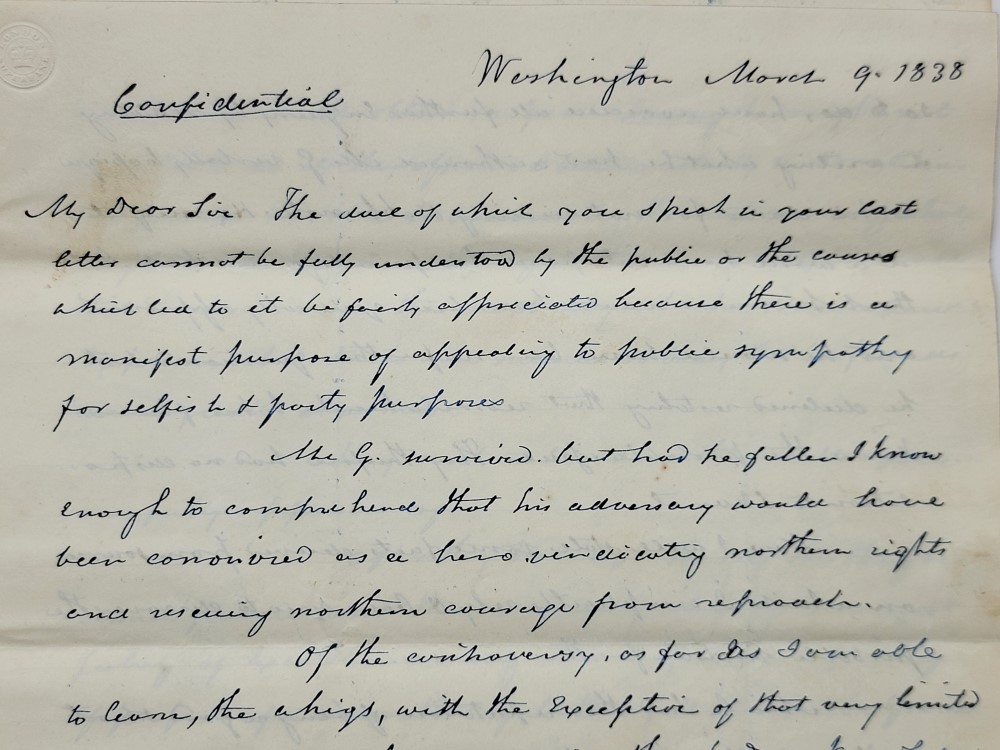 Washington March 9. 1838
Confidential
My Dear Sir The duel of which you speak in your last
letter cannot be fully understood by the public or the causes
which led to it be fairly appreciated because there is a
manifest purpose of appealing to public sympathy
for selfish & party purposes
Mr G. survived. but had he fallen I know
enough to comprehend that his adversary would have
been as a hero vindicating northern rights
and rescuing northern courage from reproach.
Of the controversy, as far as I am able
to learn, the whigs, with the Exception of that very limited